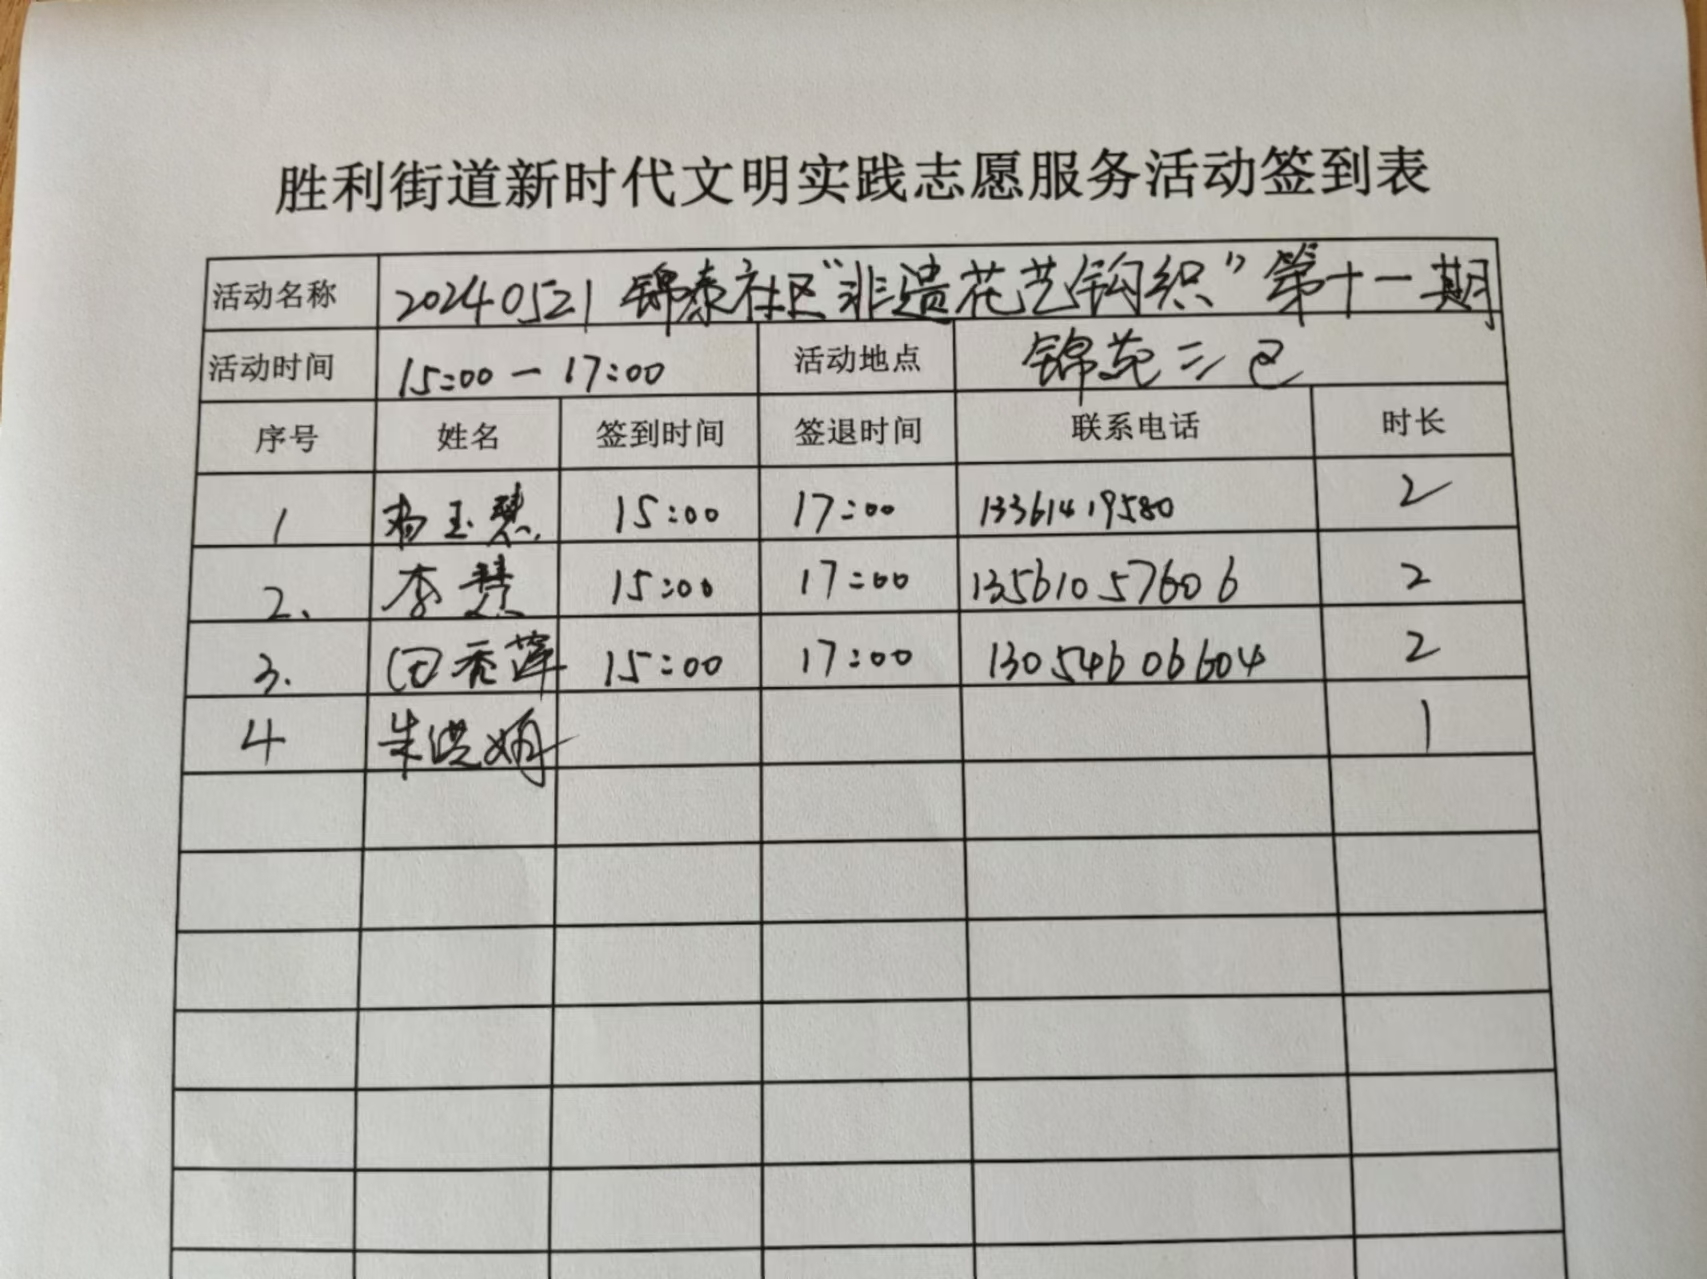 胜利街道新时代文明实践志愿服务活动签到表
活动名称 20240521 锦泰社区“非遗花艺钩织”第十一期
活动时间 15:00-17:00 活动地点 锦苑三区
序号 姓名 签到时间 签退时间 联系电话 时长
1 杨玉慧 15:00 17:00 13361419580 2
2. 李慧 15:00 17:00 13561057606 2
3. 田秀萍 15:00 17:00 13054606604 2
4 朱洪娟 1